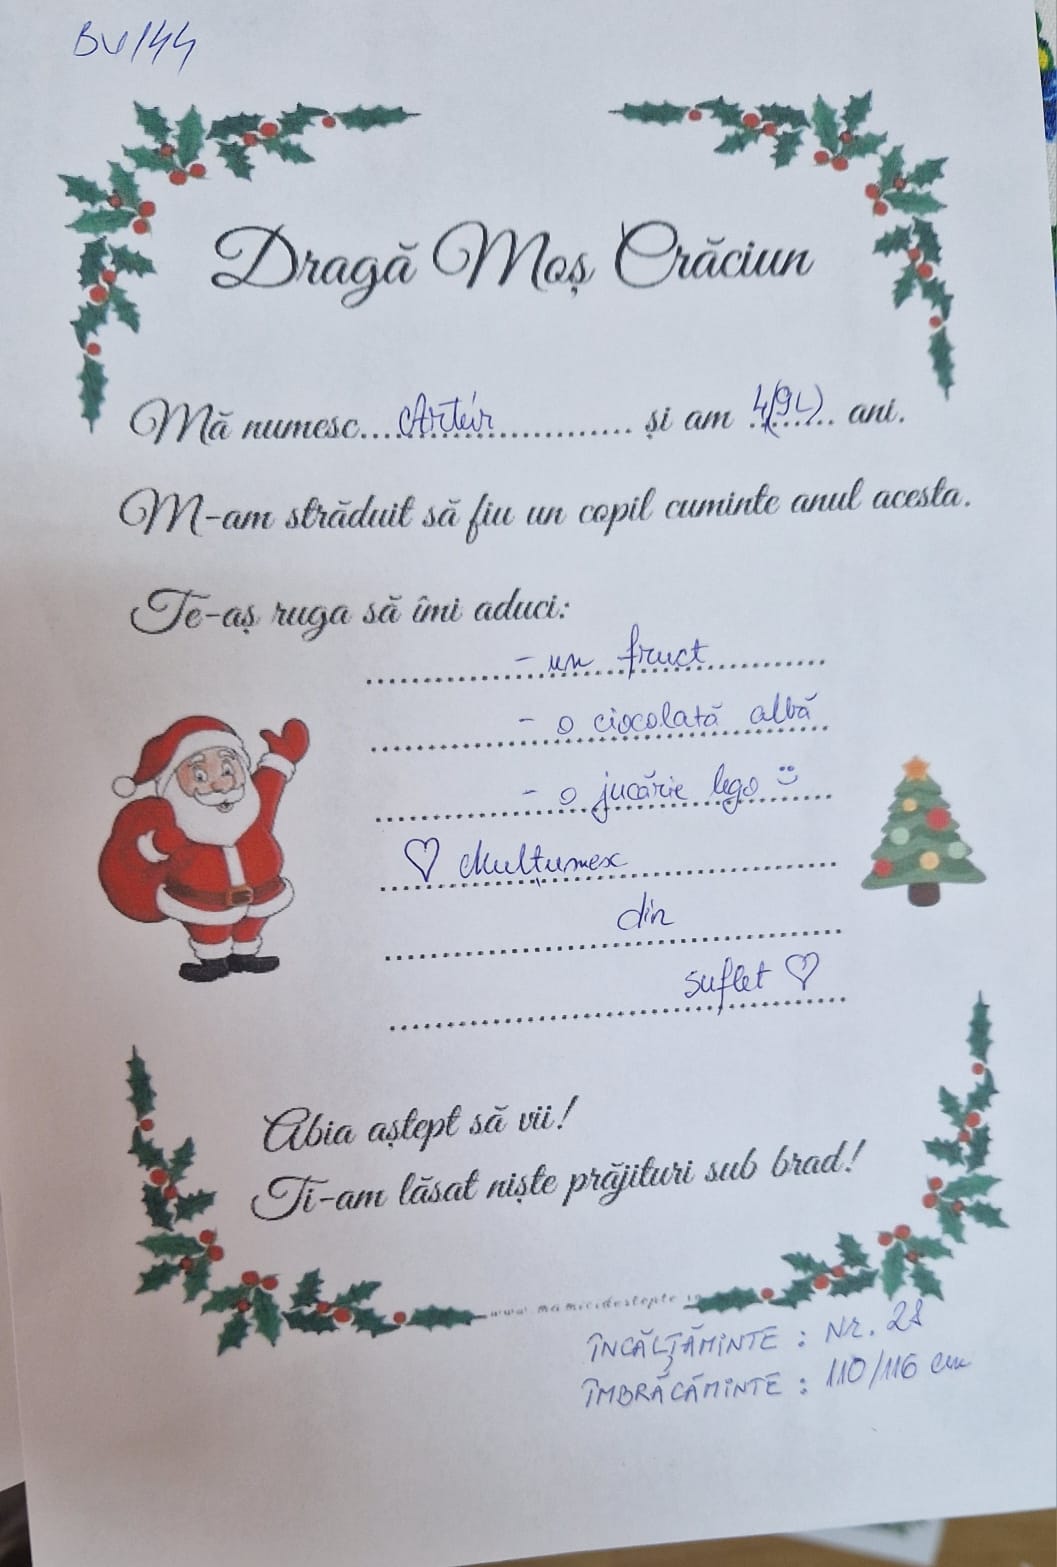 BV/44
Dragă Moș Crăciun
Mă numesc... Artúr ... și am 4(9L) ani.
M-am străduit să fiu un copil cuminte anul acesta.
Te-aș ruga să îmi aduci:
- un fruct
- o ciocolată albă
- o jucărie lego
♡ Mulțumesc
din
suflet ♡
Abia aștept să vii!
Ti-am lăsat niște prăjituri sub brad!
www.mamicidestepte.ro
ÎNCĂLȚĂMINTE : Nr. 28
ÎMBRĂCĂMINTE : 110/116 cm